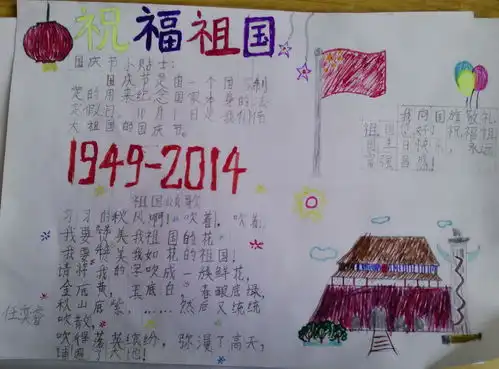 祝福祖国
国庆节小贴士:
国庆节是由一个国家制
定的用来纪念国家本身的法
定假日。10月1日是我们伟
大祖国的国庆节。
我向国旗敬礼
祖国
您好!祝福祖
国生日快乐,永远
富强昌盛!
1949-2014
祖国颂歌
习习的秋风啊!吹着,吹着,
我要赞美我祖国的花
我要赞美我如花的祖国!
请将我的字吹成一簇鲜花,
金底黄,玉底白,春酿底绿,
秋山底紫,……然后又统统
吹散,
吹得落英缤纷,弥漫了高天,
铺遍了大地!